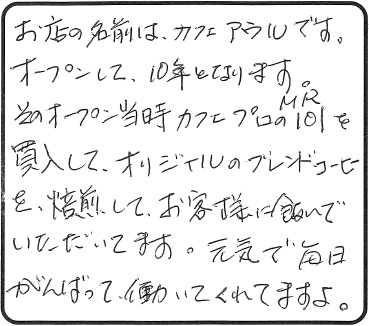 お店の名前は、カフェアウルです。
オープンして、10年となります。
そのオープン当時カフェプロのMR101を
買入して、オリジナルのブレンドコーヒー
を、焙煎して、お客様に飲んで
いただいてます。元気で毎日
がんばって、働いてくれてますよ。